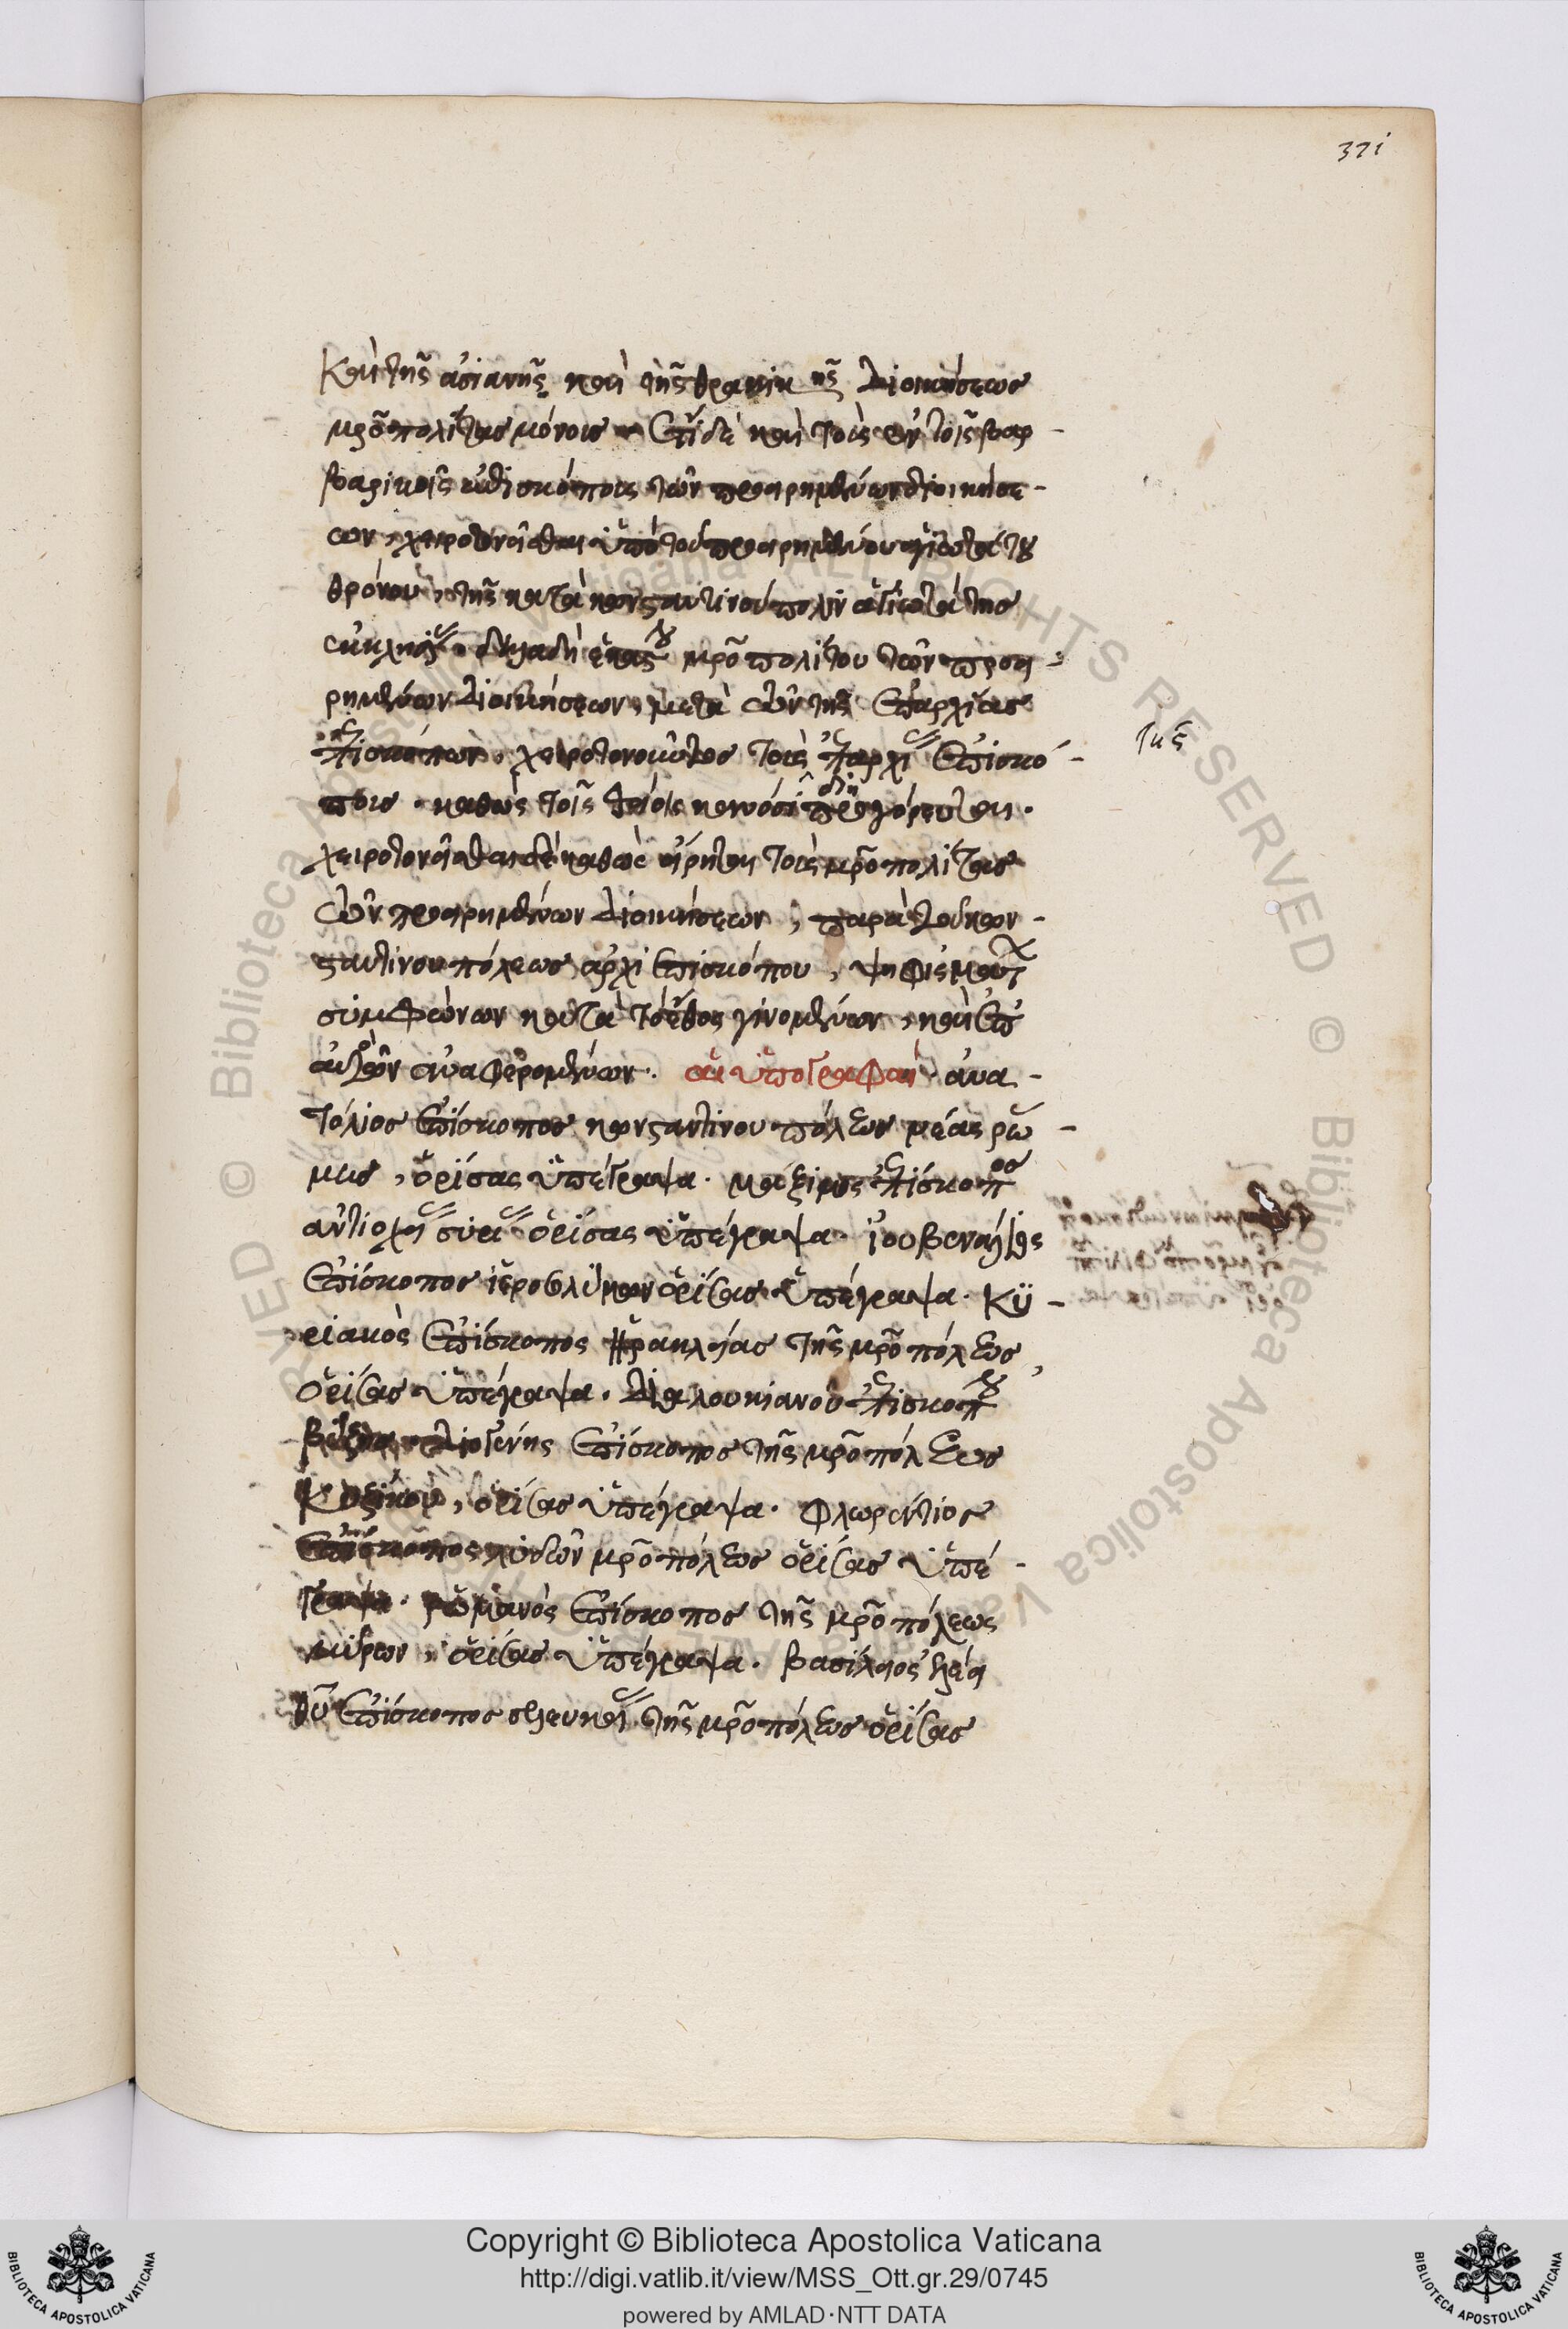 371
καὶ τῆς ἀσιανῆς καὶ τῆς θρακικῆς διοικήσεως
μρ̅οπολίτας μόνους ἔτι δὲ καὶ τοὺς ἐν τοῖς βαρ-
βαρικοῖς ἐπισκόπους τῶν προειρημένων διοικήσε-
ων, χειροτονεῖσθαι ὑπὸ τοῦ προειρημένου ἁγιωτάτου
θρόνου, τῆς κατὰ κωνσταντινούπολιν ἁγιωτάτης
ἐκκλησίας. δηλαδὴ ἑκάστου μρ̅οπολίτου τῶν προει-
ρημένων διοικήσεων, μετὰ τῶν τῆς ἐπαρχίας
ἐπισκόπων, χειροτονοῦντος τοὺς τῆς ἐπαρχίας ἐπισκό-
πους. καθὼς τοῖς θείοις κανόσι διηγόρευται.
χειροτονεῖσθαι δὲ καθὼς εἴρηται τοὺς μρ̅οπολίτας
τῶν προειρημένων διοικήσεων, παρὰ τοῦ κων-
σταντινουπόλεως ἀρχιεπισκόπου, ψηφισμάτων
συμφώνων κατὰ τὸ ἔθος γινομένων, καὶ ἐπ
αὐτὸν ἀναφερομένων. αἱ ὑπογραφαί· ἀνα-
τόλιος ἐπίσκοπος κωνσταντινουπόλεως νέας ῥώ-
μης, ὁρίσας ὑπέγραψα. μάξιμος ἐπίσκοπος
ἀντιοχείας συρίας ὁρίσας ὑπέγραψα. ἰουβενάλιος
ἐπίσκοπος ἱεροσολύμων ὁρίσας ὑπέγραψα. Κυ-
ριακὸς ἐπίσκοπος ἡρακλείας τῆς μρ̅οπόλεως
ὁρίσας ὑπέγραψα. διὰ λουκιανοῦ ἐπισκόπου
βύζης. διογένης ἐπίσκοπος τῆς μρ̅οπόλεως
Κυζίκου, ὁρίσας ὑπέγραψα. φλωρέντιος
ἐπίσκοπος λυδῶν μρ̅οπόλεως ὁρίσας ὑπέ-
γραψα. ρωμανὸς ἐπίσκοπος τῆς μρ̅οπόλεως
μύρων, ὁρίσας ὑπέγραψα. βασίλειος ἐλέει
θυ̅ ἐπίσκοπος σελευκείας τῆς μρ̅οπόλεως ὁρίσας
Copyright © Biblioteca Apostolica Vaticana
http://digi.vatlib.it/view/MSS_Ott.gr.29/0745
powered by AMLAD·NTT DATA